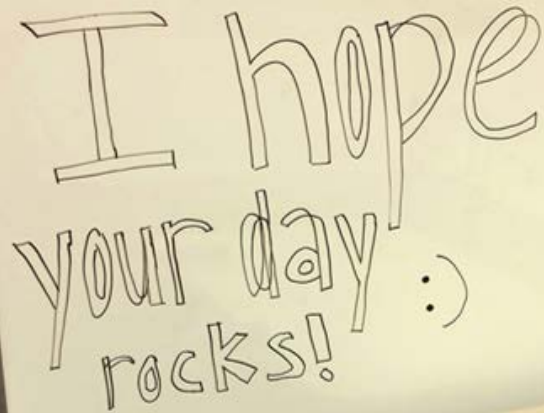 I hope
your day :)
rocks!